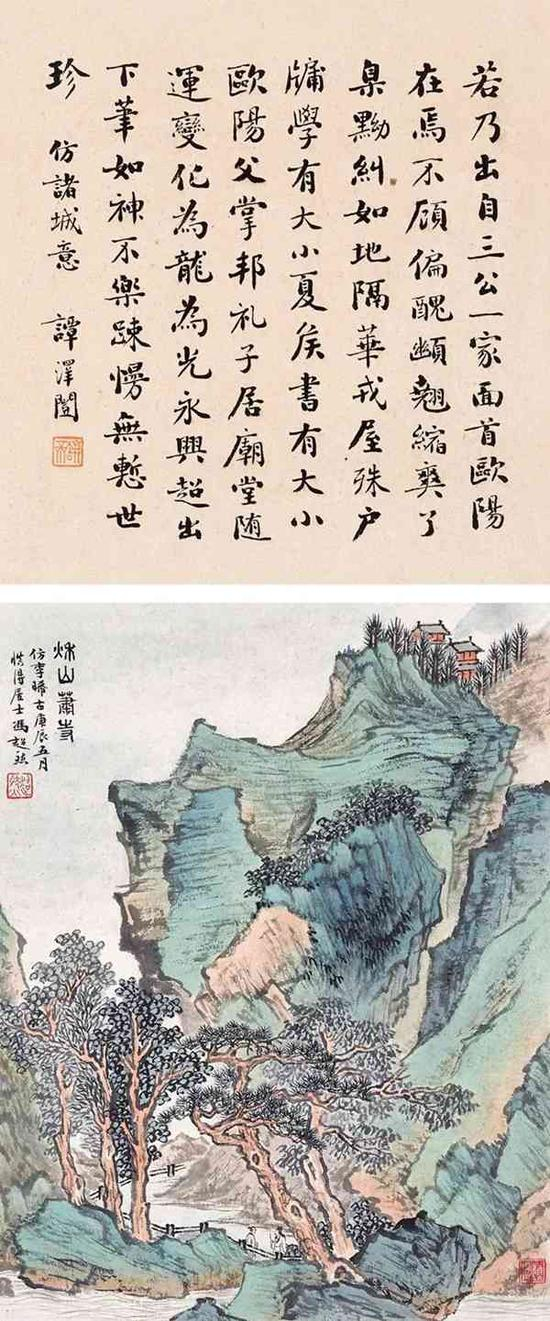 若乃出自三公一家面首歐陽
在焉不顧偏醜翹縮爽了
臬黝糾如地隔華戎屋殊户
牖學有大小夏侯書有大小
歐陽父掌邦礼子居廟堂随
運變化為龍為光永興超出
下筆如神不樂踈慢無慙世
珍 仿諸城意 譚澤闓
秌山蕭寺
仿李晞古庚辰五月
慎得居士馮超然